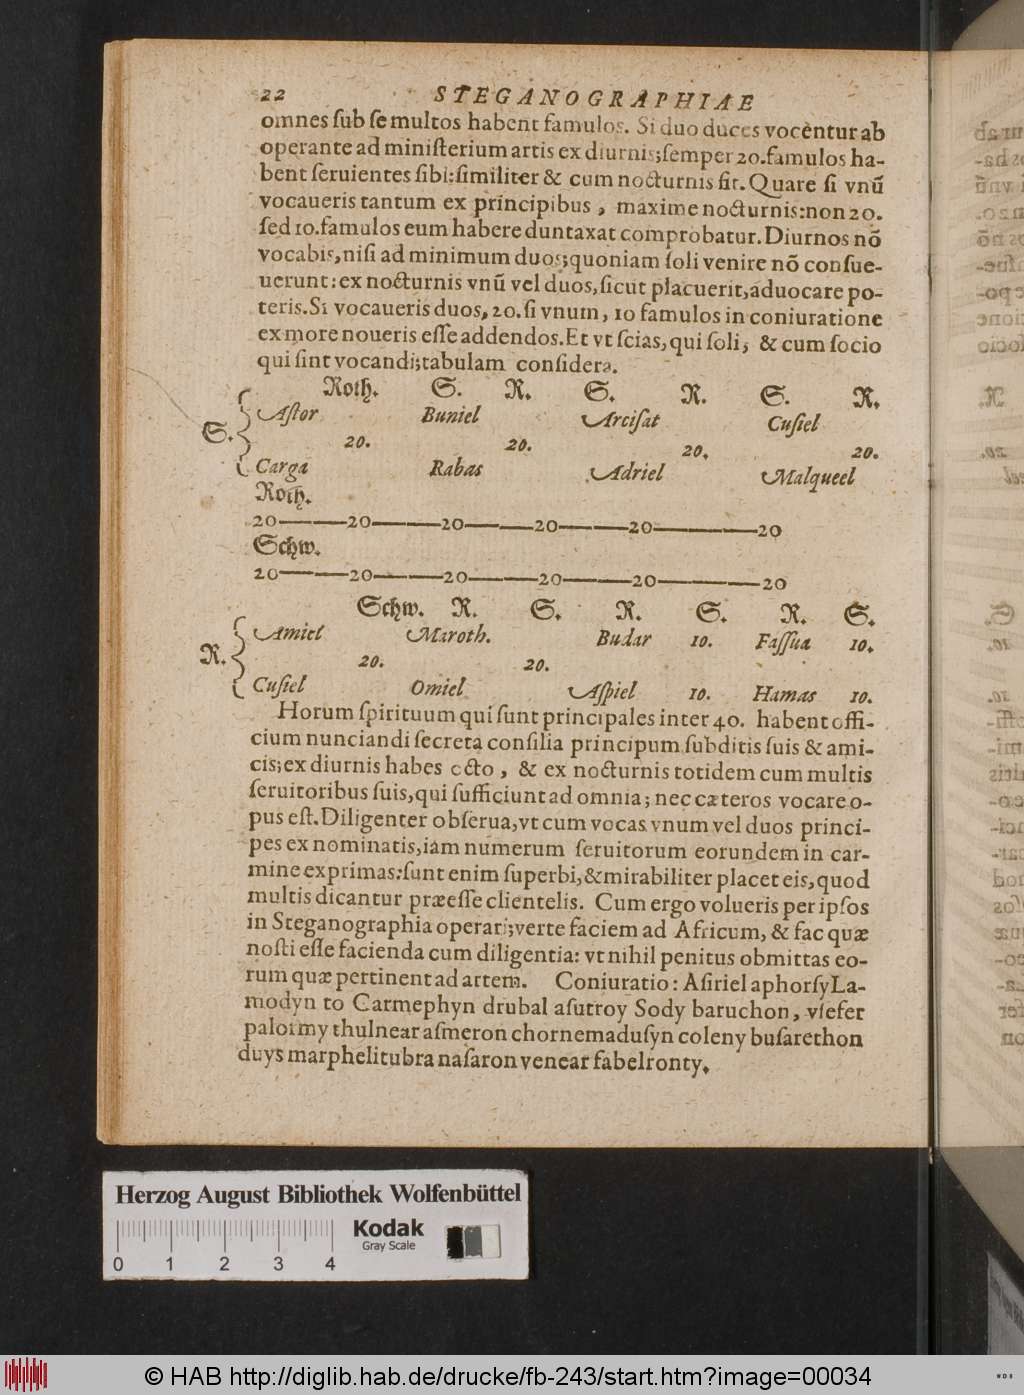 22 STEGANOGRAPHIAE
omnes ſub ſe multos habent famulos. Si duo duces vocentur ab
operante ad miniſterium artis ex diurnis; ſemper 20. famulos ha-
bent ſeruientes ſibi: ſimiliter & cum nocturnis fit. Quare ſi vnũ
vocaueris tantum ex principibus, maxime nocturnis: non 20.
ſed 10. famulos eum habere duntaxat comprobatur. Diurnos nõ
vocabis, niſi ad minimum duos; quoniam ſoli venire nõ conſue-
uerunt: ex nocturnis vnũ vel duos, ſicut placuerit, aduocare po-
teris. Si vocaueris duos, 20. ſi vnum, 10 famulos in coniuratione
ex more noueris eſſe addendos. Et vt ſcias, qui ſoli, & cum ſocio
qui ſint vocandi; tabulam conſidera.
Roth. S. R. S. R. S. R.
S. { Aſtor Buniel Arciſat Cuſiel
20. 20. 20. 20.
Carga Rabas Adriel Malqueel
Roth.
20——20——20——20——20——20
Schw.
20——20——20——20——20——20
Schw. R. S. R. S. R. S.
R. { Amiel Maroth. Budar 10. Faſſua 10.
20. 20.
Cuſiel Omiel Aſpiel 10. Hamas 10.
Horum ſpirituum qui ſunt principales inter 40. habent offi-
cium nunciandi ſecreta conſilia principum ſubditis ſuis & ami-
cis; ex diurnis habes octo, & ex nocturnis totidem cum multis
ſeruitoribus ſuis, qui ſufficiunt ad omnia; nec cæteros vocare o-
pus eſt. Diligenter obſerua, vt cum vocas vnum vel duos princi-
pes ex nominatis, iam numerum ſeruitorum eorundem in car-
mine exprimas: ſunt enim ſuperbi, & mirabiliter placet eis, quod
multis dicantur præeſſe clientelis. Cum ergo volueris per ipſos
in Steganographia operari; verte faciem ad Africum, & fac quæ
noſti eſſe facienda cum diligentia: vt nihil penitus obmittas eo-
rum quæ pertinent ad artem. Coniuratio: Aſiriel aphorſy La-
modyn to Carmephyn drubal aſutroy Sody baruchon, vſefer
paloimy thulnear aſmeron chornemaduſyn coleny buſarethon
duys marphelitubra naſaron venear fabelronty.
Herzog August Bibliothek Wolfenbüttel
Kodak
Gray Scale
0 1 2 3 4
© HAB http://diglib.hab.de/drucke/fb-243/start.htm?image=00034